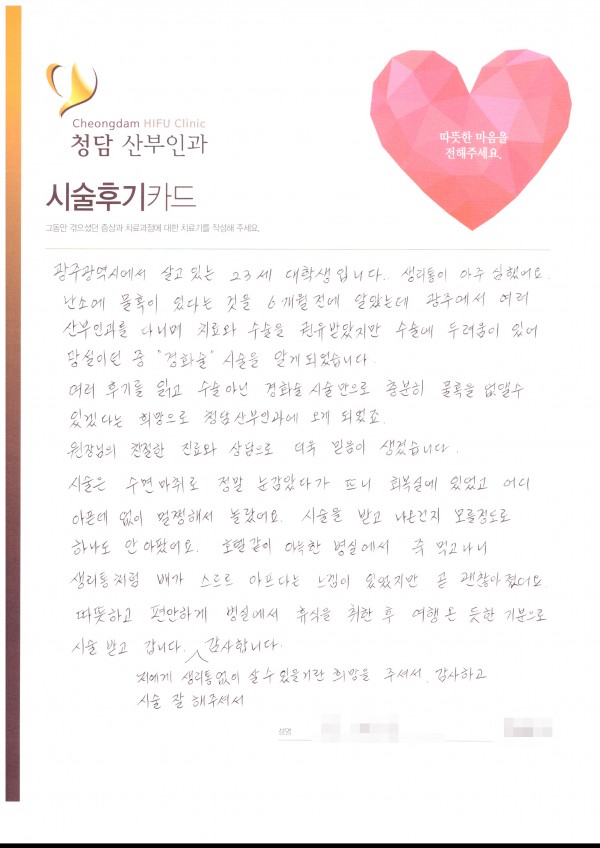 Cheongdam HIFU Clinic
청담 산부인과
따뜻한 마음을
전해주세요.
시술후기카드
그동안 겪으셨던 증상과 치료과정에 대한 치료기를 작성해 주세요.
광주광역시에서 살고 있는 23세 대학생입니다.. 생리통이 아주 심했어요.
난소에 물혹이 있다는 것을 6개월전에 알았는데 광주에서 여러
산부인과를 다니며 치료와 수술을 권유받았지만 수술에 두려움이 있어
망설이던 중 "경화술" 시술을 알게되었습니다.
여러 후기를 읽고 수술아닌 경화술 시술만으로 충분히 물혹을 없앨수
있겠다는 희망으로 청담산부인과에 오게 되었죠.
원장님의 친절한 진료와 상담으로 더욱 믿음이 생겼습니다.
시술은 수면마취로 정말 눈감았다가 뜨니 회복실에 있었고 어디
아픈데 없이 멀쩡해서 놀랐어요. 시술을 받고 나온건지 모를정도로
하나도 안아팠어요. 호텔같이 아늑한 병실에서 죽 먹고나니
생리통처럼 배가 스르르 아프다는 느낌이 있었지만 곧 괜찮아졌어요
따뜻하고 편안하게 병실에서 휴식을 취한 후 여행온 듯한 기분으로
시술 받고 갑니다. 감사합니다.
저에게 생리통없이 살수있을거란 희망을 주셔서 감사하고
시술 잘 해주셔서
성명